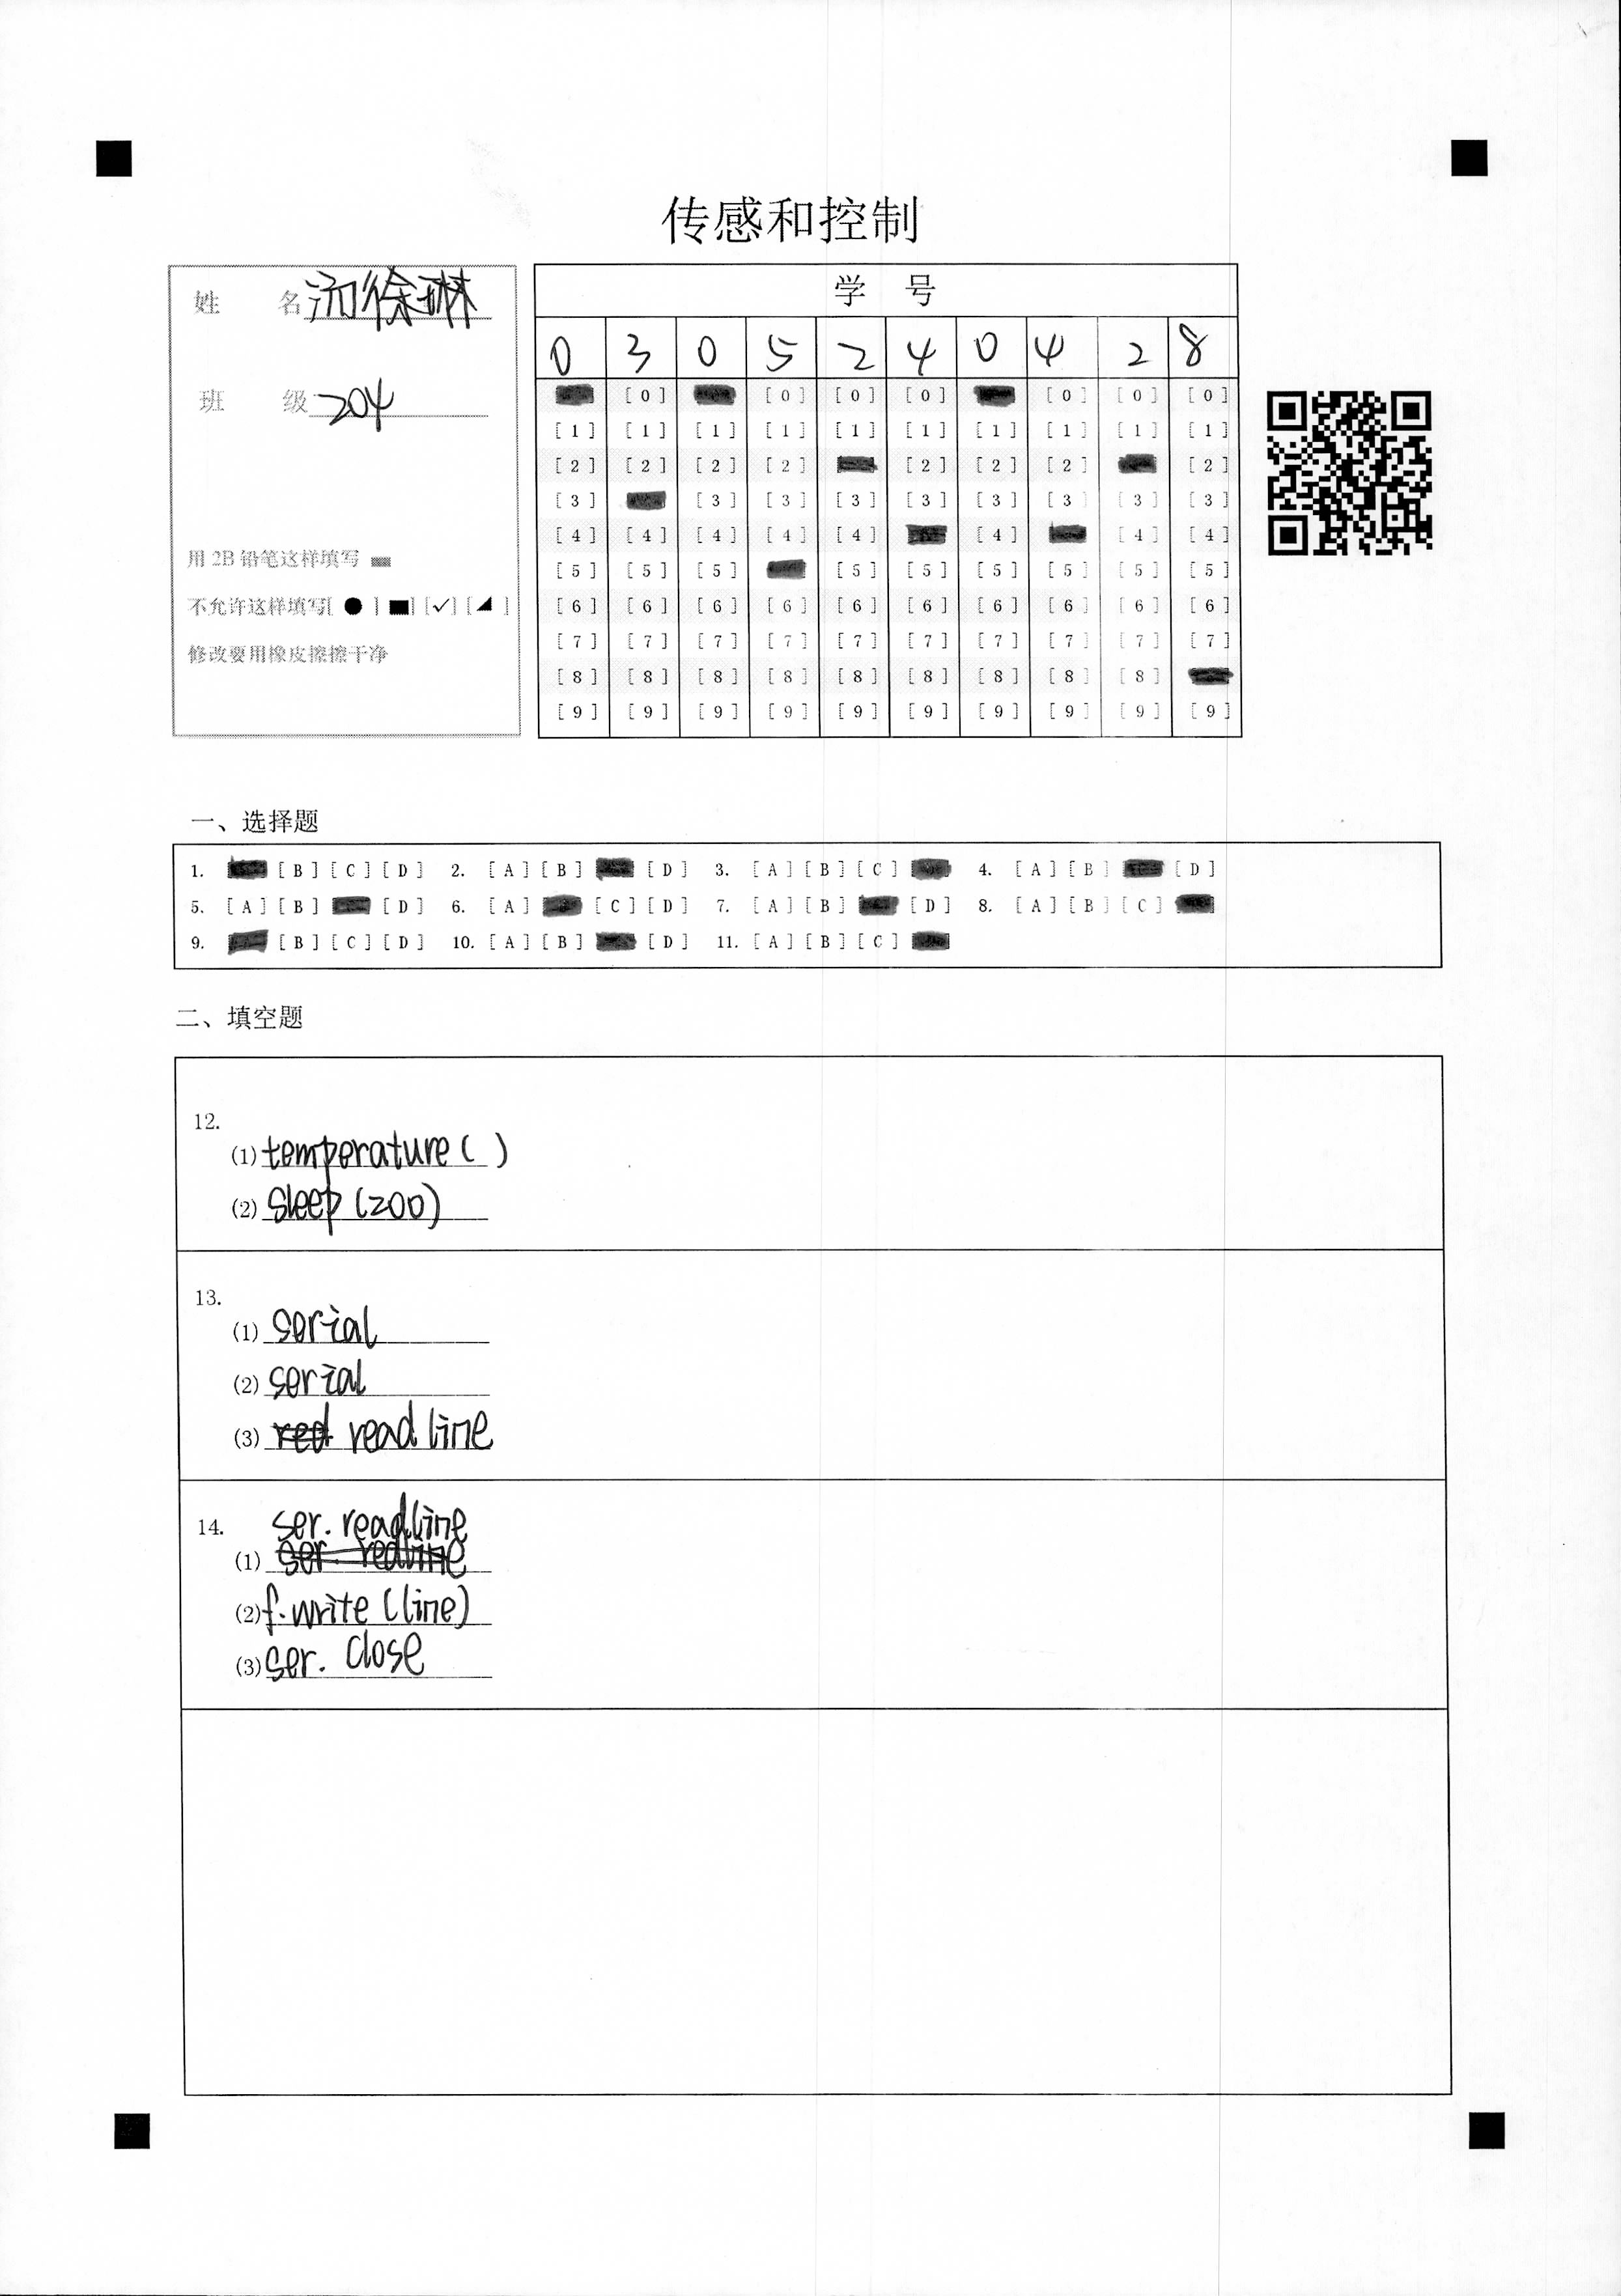 传感和控制
姓 名 汤徐琳
班 级 204
用 2B 铅笔这样填写
不允许这样填写[ ● ] ■] [✓] [◢ ]
修改要用橡皮擦擦干净
学 号
0 3 0 5 2 4 0 4 2 8
[0] [0] [0] [0] [0] [0] [0]
[1] [1] [1] [1] [1] [1] [1] [1] [1] [1]
[2] [2] [2] [2] [2] [2] [2] [2]
[3] [3] [3] [3] [3] [3] [3] [3] [3]
[4] [4] [4] [4] [4] [4] [4] [4]
[5] [5] [5] [5] [5] [5] [5] [5] [5]
[6] [6] [6] [6] [6] [6] [6] [6] [6] [6]
[7] [7] [7] [7] [7] [7] [7] [7] [7] [7]
[8] [8] [8] [8] [8] [8] [8] [8] [8]
[9] [9] [9] [9] [9] [9] [9] [9] [9] [9]
一、选择题
1. [B] [C] [D] 2. [A] [B] [D] 3. [A] [B] [C] 4. [A] [B] [D]
5. [A] [B] [D] 6. [A] [C] [D] 7. [A] [B] [D] 8. [A] [B] [C]
9. [B] [C] [D] 10. [A] [B] [D] 11. [A] [B] [C]
二、填空题
12.
(1) temperature( )
(2) sleep (200)
13.
(1) serial
(2) serial
(3) red readline
14. ser. readline
(1) ser. redline
(2) f.write (line)
(3) ser. close